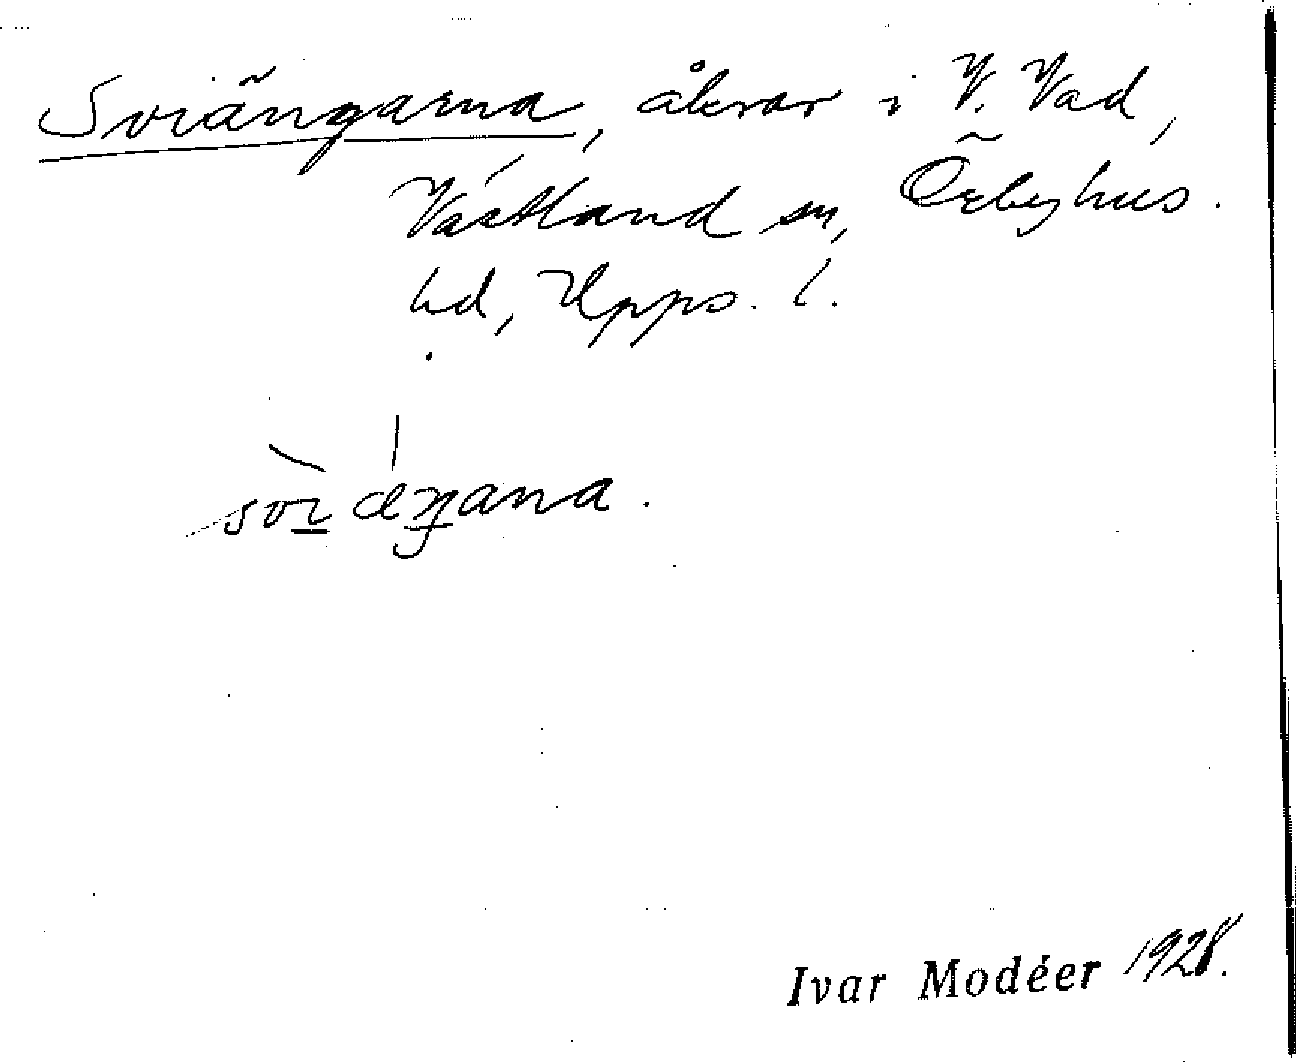 Sviängarna, åkrar i V. Vad,
Västland sn, Örbyhus.
hd, Upps. l.
Ivar Modéer 1928.